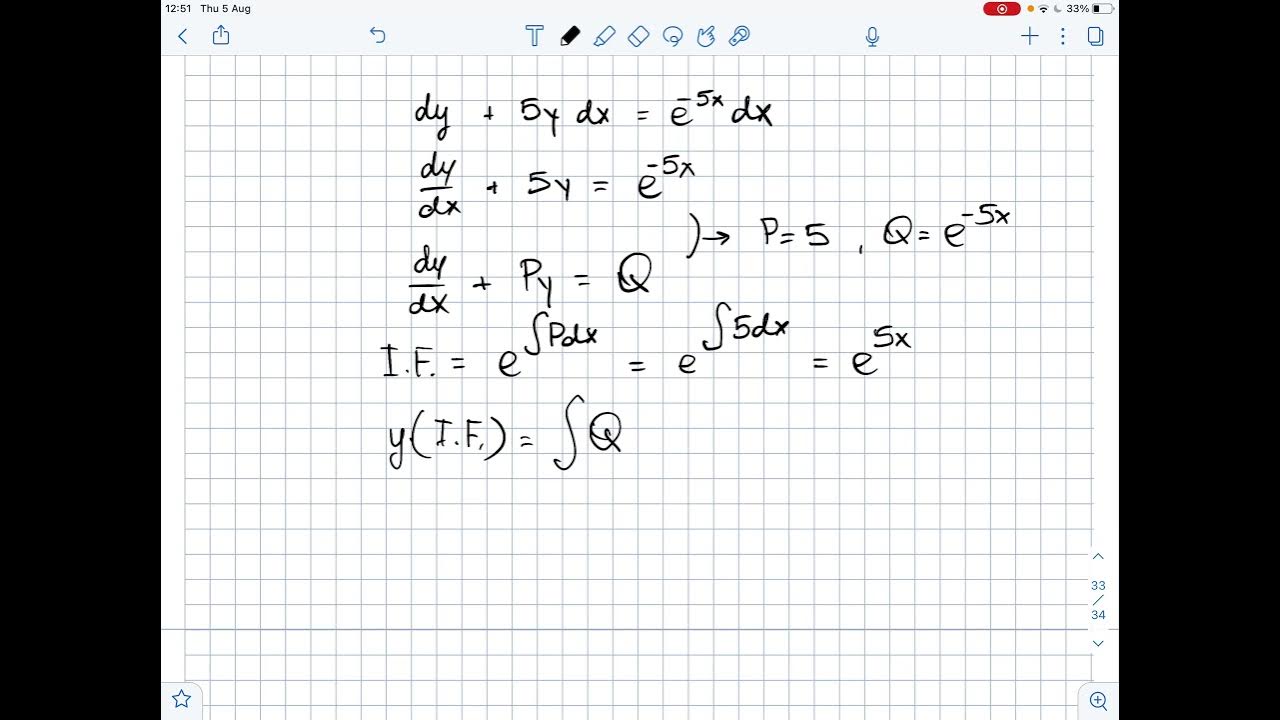 12:51 Thu 5 Aug 33%
T
dy + 5y dx = e^{-5x} dx
dy/dx + 5y = e^{-5x}
→ P = 5 , Q = e^{-5x}
dy/dx + Py = Q
I.F. = e^{∫Pdx} = e^{∫5dx} = e^{5x}
y(I.F.) = ∫Q
33
/
34